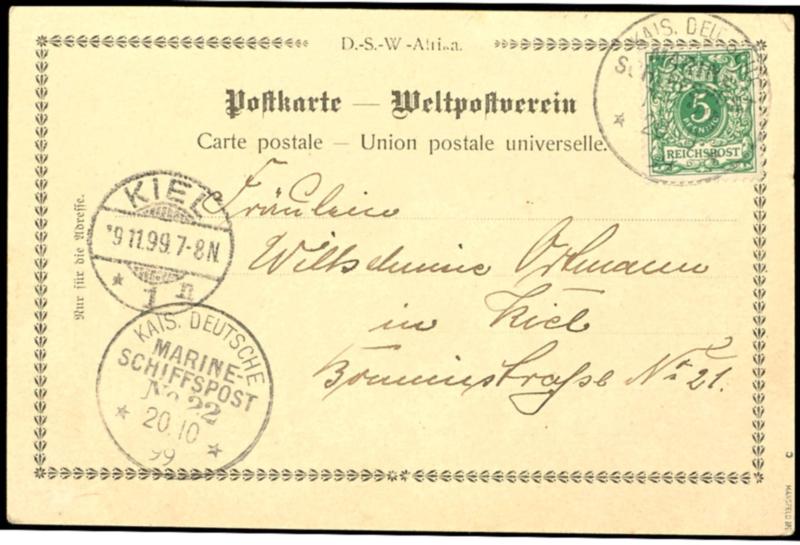 D.-S.-W-Afrika.
Postkarte — Weltpostverein
Carte postale — Union postale universelle.
KAIS. DEU
5
PFENNIG
REICHSPOST
Nur für die Adresse.
KIEL
*9 11.99. 7-8N.
1 n
Fräulein
Wilhelmine Ortmann
in Kiel
Nr 21.
KAIS. DEUTSCHE
MARINE-
SCHIFFSPOST
No 22
20.10
99
MANSFELD